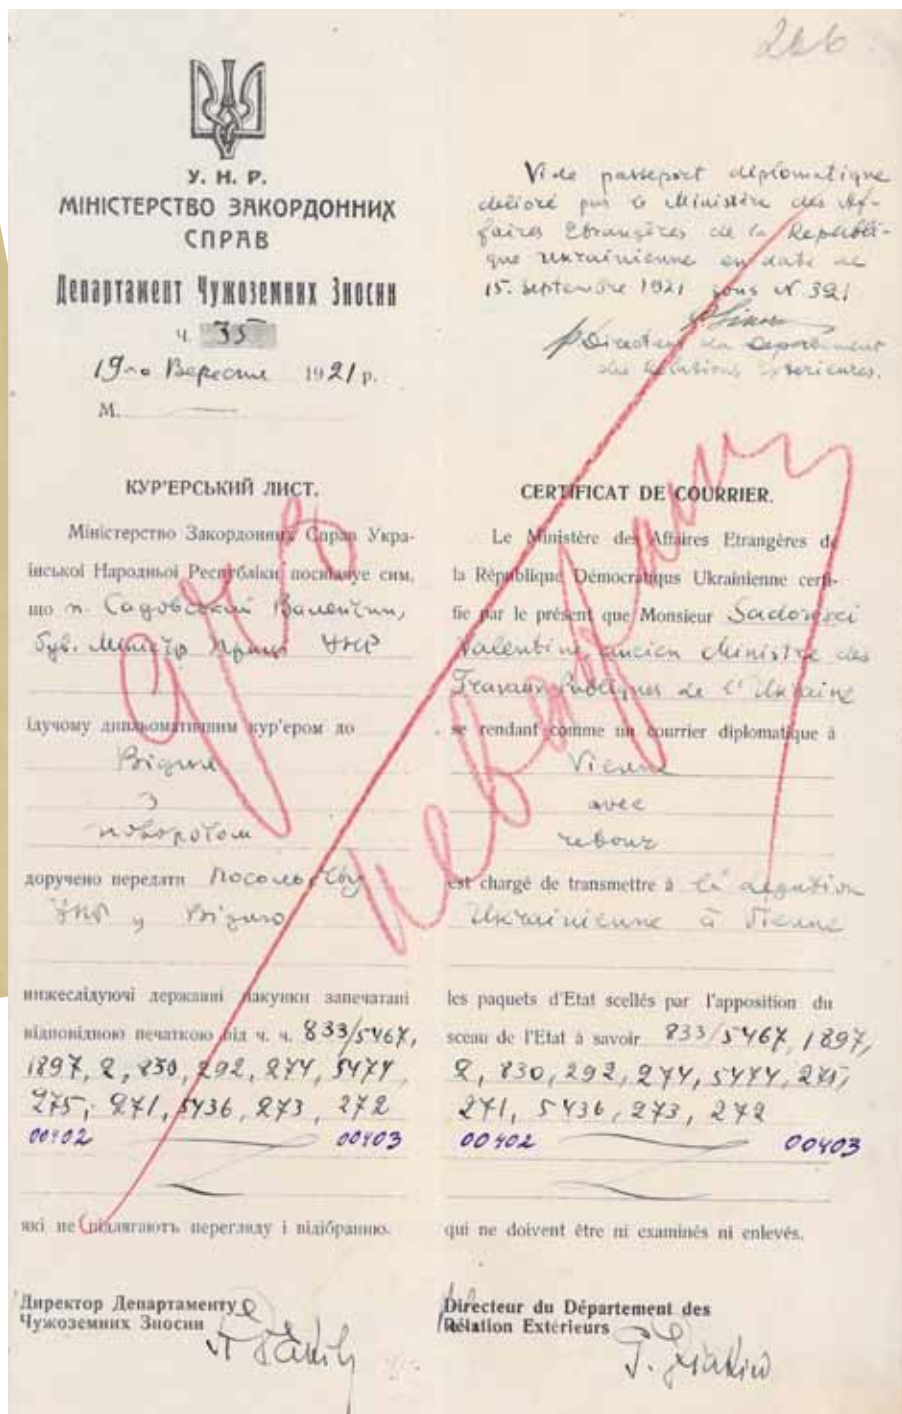 266
У. Н. Р.
МІНІСТЕРСТВО ЗАКОРДОННИХ
СПРАВ
Департамент Чужоземних Зносин
ч. 35
19-го Вересня 1921 р.
М.
КУР'ЕРСЬКИЙ ЛИСТ.
Міністерство Закордонних Справ Укра-
їнської Народньої Республіки посвідчує сим,
що п. Садовський Валентин,
був. Міністр Праці УНР
їдучому дипльоматичним кур'ером до
Відня
з
поворотом
доручено передати Посольству
УНР у Відню
нижеслідуючі державні пакунки запечатані
відповідною печаткою від ч. ч. 833/5467,
1897, 2, 830, 292, 274, 5474
275, 271, 5436, 273, 272
00402 00403
які не підлягають перегляду і відібранню.
Директор Департаменту
Чужоземних Зносин
Vide passeport diplomatique
délivré par le Ministère des Af-
faires Etrangères de la Républi-
que Ukrainienne en date de
15. septembre 1921 sous N 391
Directeur du Département
des Relations Exterieures.
CERTIFICAT DE COURRIER.
Le Ministère des Affaires Etrangères de
la République Démocratiqus Ukrainienne certi-
fie par le présent que Monsieur Sadovsci
Valentin, ancien Ministre des
Travaux Publiques de l'Ukraine
se rendant comme un courrier diplomatique à
Vienne
avec
retour
est chargé de transmettre à la Legation
Ukrainienne à Vienne
les paquets d'Etat scellés par l'apposition du
sceau de l'Etat à savoir 833/5467, 1897,
2, 830, 292, 274, 5474, 275,
271, 5436, 273, 272
00402 00403
qui ne doivent être ni examinés ni enlevés.
Directeur du Département des
Rélation Extérieurs